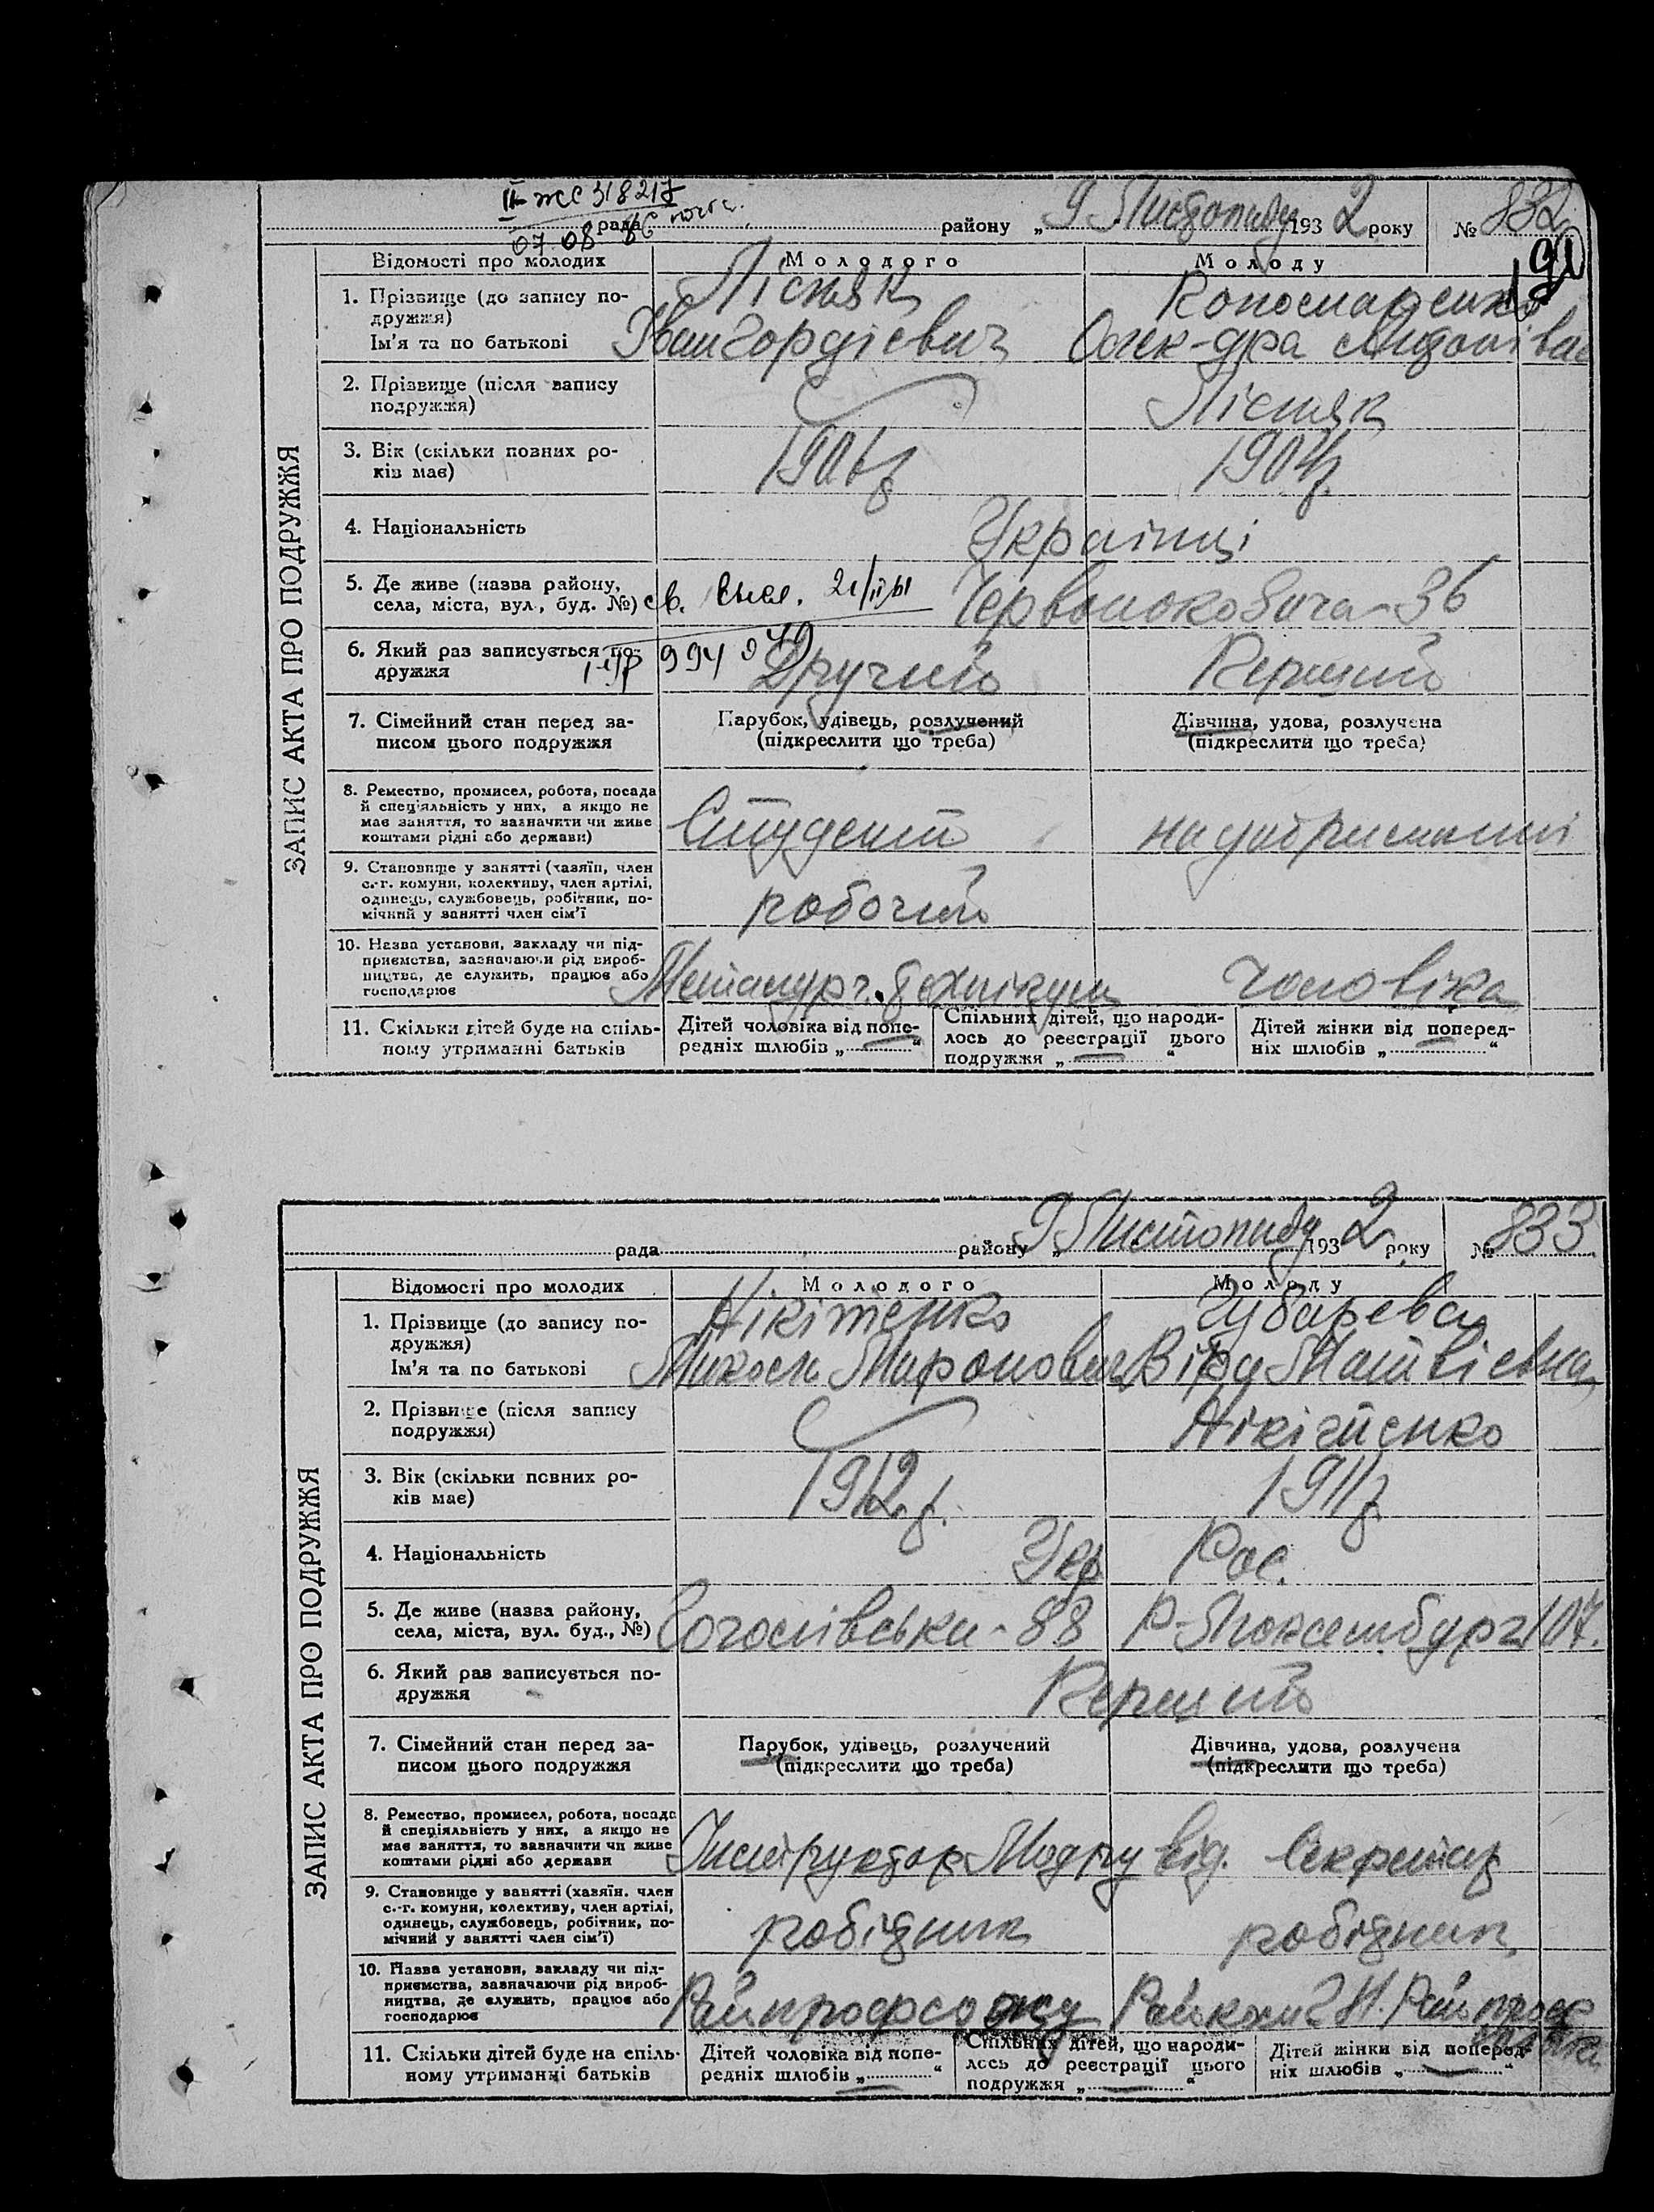 II-ЖС 318217
07.08
рада району „9 Листопаду 1932 року № 832
190
Відомості про молодих Молодого Молоду
1. Прізвище (до запису по-
дружжя)
Лісняк
Ім'я та по батькові Іван Гордієвич Олек-дра Антонівна
2. Прізвище (після запису
подружжя)
Лісняк
3. Вік (скільки повних ро-
ків має)
1906 р 1904 р.
4. Національність Українці
5. Де живе (назва району,
села, міста, вул., буд. №) Червонокозача-36
св. 21/II
6. Який раз записується по-
дружжя
994 Другий Перший
7. Сімейний стан перед за-
писом цього подружжя
Парубок, удівець, розлучений
(підкреслити що треба)
Дівчина, удова, розлучена
(підкреслити що треба)
8. Ремество, промисел, робота, посада
й спеціяльність у них, а якщо не
має заняття, то зазначити чи живе
коштами рідні або держави)
Студент на утриманні
9. Становище у занятті (хазяїн, член
с.-г. комуни, колективу, член артілі,
одинець, службовець, робітник, по-
мічний у занятті член сім'ї
робочий
10. Назва установи, закладу чи під-
приємства, зазначаючи рід вироб-
ництва, де служить, працює або
господарює
Металург. технікум чоловіка
11. Скільки дітей буде на спіль-
ному утриманні батьків
Дітей чоловіка від попе-
редніх шлюбів „ — “
Спільних дітей, що народи-
лось до реєстрації цього
подружжя „ — “
Дітей жінки від поперед-
ніх шлюбів „ — “
ЗАПИС АКТА ПРО ПОДРУЖЖЯ
рада району „9 Листопаду 1932 року № 833
Відомості про молодих Молодого Молоду
1. Прізвище (до запису по-
дружжя)
Нікітенко Губарева
Ім'я та по батькові Микола Миронович Віра Матвієвна
2. Прізвище (після запису
подружжя)
Нікітенко
3. Вік (скільки повних ро-
ків має)
1912 р. 1911 р.
4. Національність Укр Рос.
5. Де живе (назва району,
села, міста, вул. буд., №) Гоголівська-88 Р-Люксембург 107.
6. Який раз записується по-
дружжя
Перший
7. Сімейний стан перед за-
писом цього подружжя
Парубок, удівець, розлучений
(підкреслити що треба)
Дівчина, удова, розлучена
(підкреслити що треба)
8. Ремество, промисел, робота, посада
й спеціяльність у них, а якщо не
має заняття, то зазначити чи живе
коштами рідні або держави
Інструктор від. Секретар
9. Становище у занятті (хазяїн. член
с.-г. комуни, колективу, член артілі,
одинець, службовець, робітник, по-
мічний у занятті член сім'ї)
робітник робітник
10. Назва установи, закладу чи під-
приємства, зазначаючи рід вироб-
ництва, де служить, працює або
господарює
Райпрофсожу Райком
11. Скільки дітей буде на спіль-
ному утриманні батьків
Дітей чоловіка від попе-
редніх шлюбів „ — “
Спільних дітей, що народи-
лось до реєстрації цього
подружжя „ — “
Дітей жінки від поперед-
ніх шлюбів „ — “
ЗАПИС АКТА ПРО ПОДРУЖЖЯ